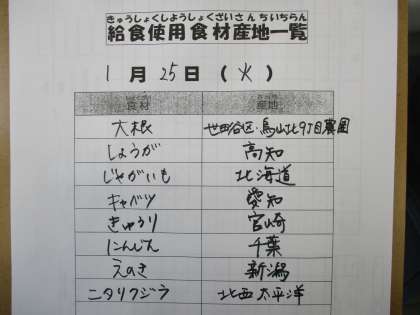 きゅうしょくしようしょくざいさんちいちらん
給食使用食材産地一覧
1月25日(火)
食材 産地
大根 世田谷区烏山北9丁目農園
しょうが 高知
じゃがいも 北海道
キャベツ 愛知
きゅうり 宮崎
にんじん 千葉
えのき 新潟
ニタリクジラ 北西太平洋